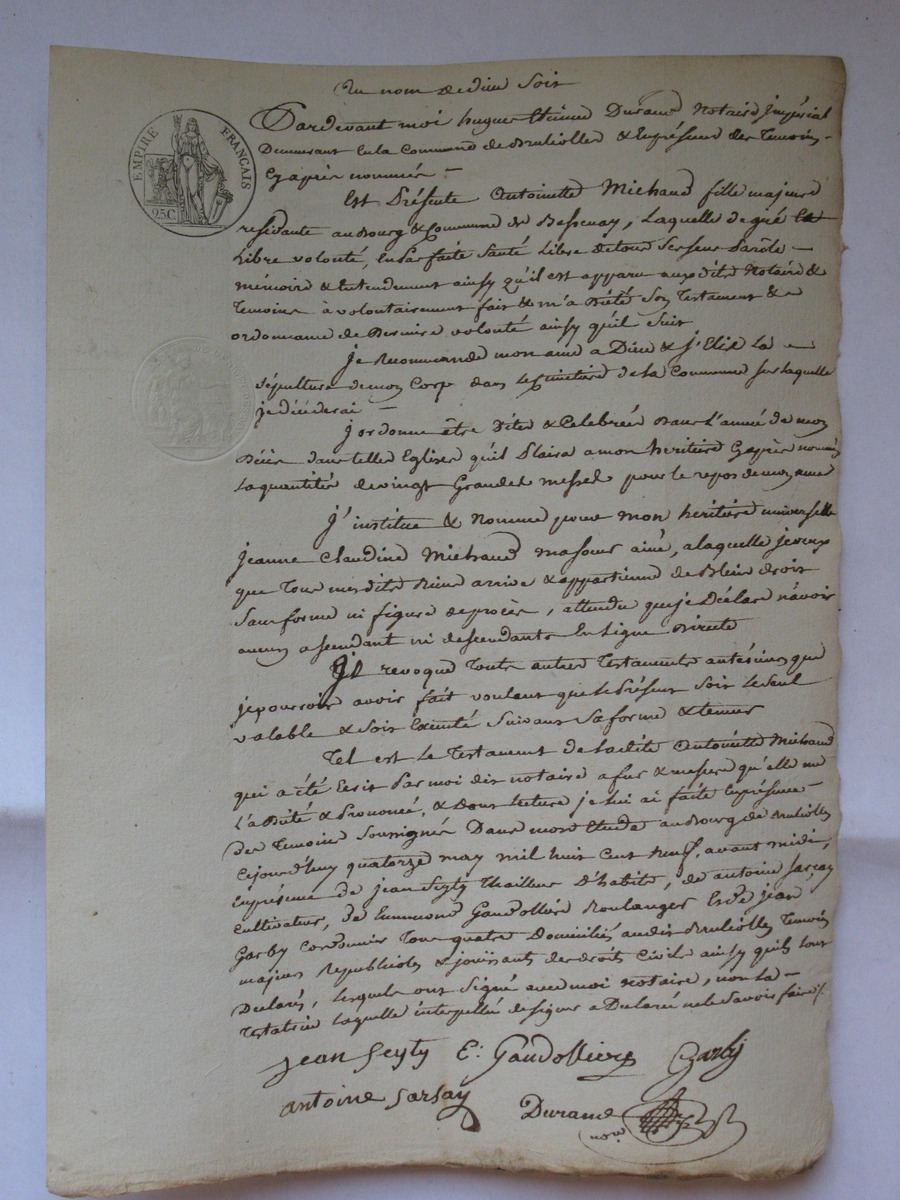 Au nom de dieu soit
EMPIRE FRANÇAIS
25C
Pardevant moi hugue Etienne Durand Notaire Impérial
Demeurant en la Commune de Brulioles & En présence des Temoins
Cyaprès nommés
Est Présente Antoinette Michaud fille majeure
residante au Bourg & Commune de Bessenay, Laquelle de gré &
Libre volonté, En parfaite Santé Libre de tous ses sens Parole
mémoire & Entendement ainsy qu'il est apparu auxdits Notaire &
Temoins à volontairement fait & m'a Dicté Son Testament &
ordonnance de Derniere volonté ainsy qu'il Suit
Je Recommande mon ame a Dieu & J'Elis La
Sépulture de mon Corp dans le Cimetiere de la Commune sur laquelle
je décéderai
J'ordonne être Dites & Celebrées Dans L'année de mon
Décès dans telles Eglises qu'il Plaira a mon heritiere Cyaprès nommée
La quantités de vingt Grandes messes pour le repos de mon ame
J'institue & Nomme pour mon heritiere universelle
jeanne Claudine Michaud ma soeur ainé, a laquelle je veux
que Tous mesdits Biens arrive & appartienne de Plein droit
Sans forme ni figure de procès, attendu que je Déclare n'avoir
aucun ascendant ni descendants En Ligne Directe
Je revoque Toute autres Testaments antérieurs que
je pourrois avoir fait voulant que le Présent Soit Le Seul
valable & Soit Executé Suivant Sa forme & teneur
Tel est Le Testament de Ladite Antoinette Michaud
qui a été Ecrit Par moi dit notaire a fur & mesure qu'elle me
L'a Dicté & Prononcé, & Dont Lecture je lui ai faite En présence
des Temoins Soussignés Dans mon Etude au Bourg de Brulioles
Cejourd'huy quatorze may mil huit Cent Neuf, avant midi,
En présence de Jean Seyty Thailleur D'habits, de antoine Sarsay
Cultivateur, de Ennemond Gaudolliere Boulanger Et de Jean
Garby Cordonnier Tous quatre Domiciliés audit Brulioles Temoins
majeurs Republicoles & jouissants des droits Civils ainsy qu'ils l'ont
Declarés, Lesquels ont Signé avec moi notaire, non La
Testatrice Laquelle interpellée de signer a Declaré ne le Savoir faire /.
Jean Seyty E: Gaudolliere Garby
antoine Sarsay Durand
nore